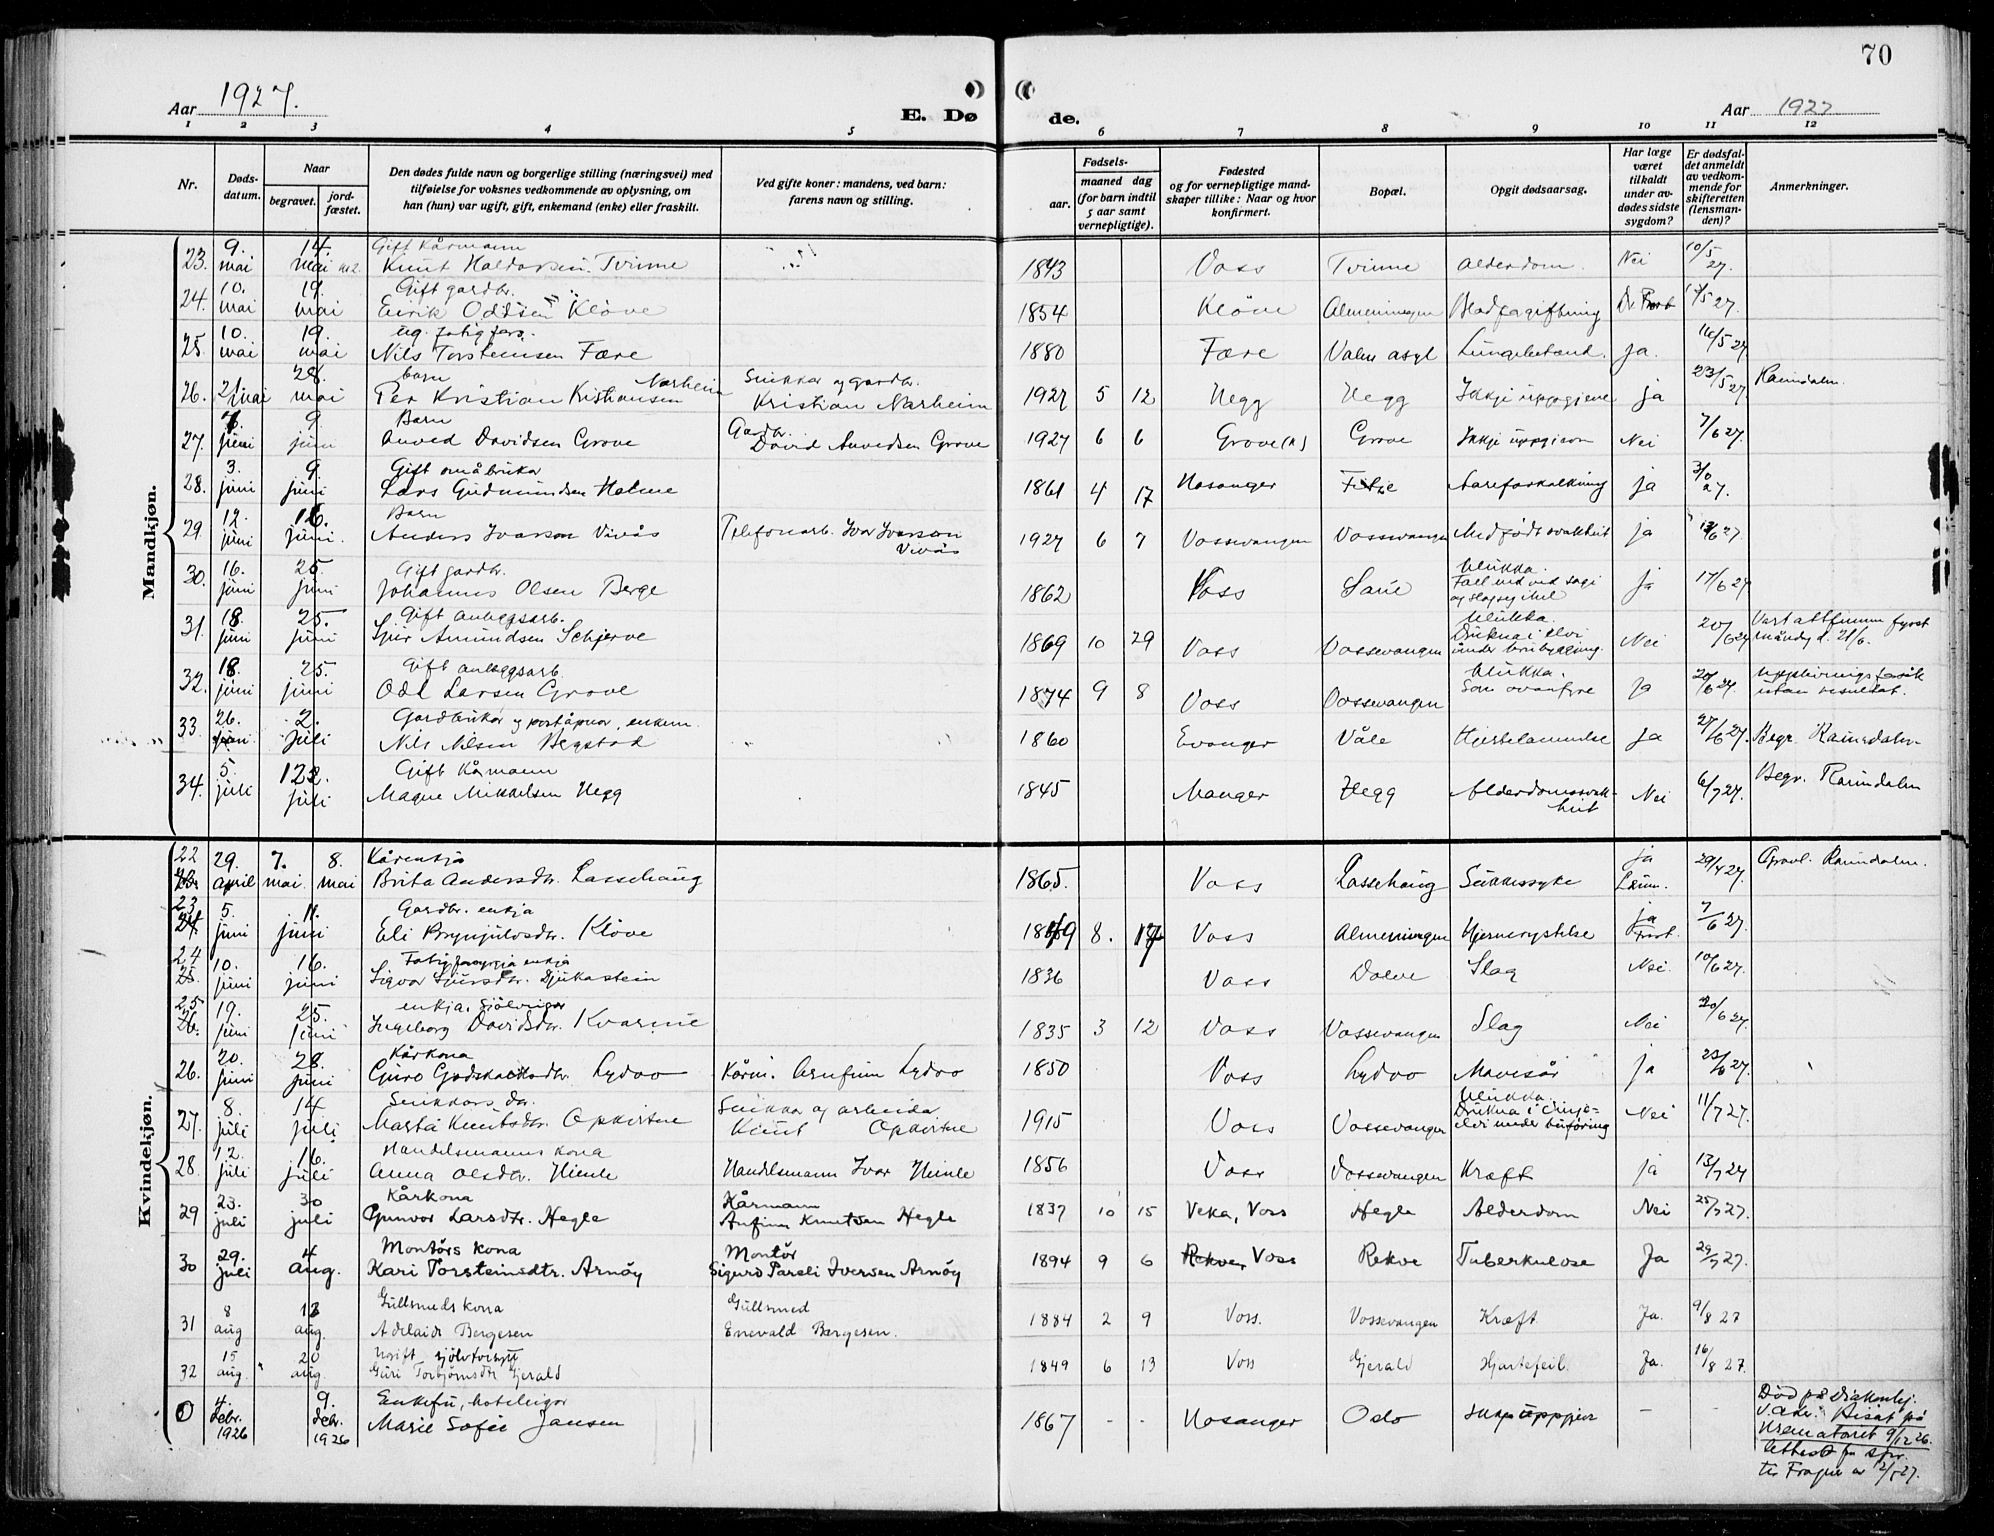 70
Aar 1927.
E. Dø de.
Aar 1927
1 2 3 4 5 6 7 8 9 10 11 12
Nr.
Døds-
datum.
Naar
begravet.
jord-
fæstet.
Den dødes fulde navn og borgerlige stilling (næringsvei) med
tilføielse for voksnes vedkommende av oplysning, om
han (hun) var ugift, gift, enkemand (enke) eller fraskilt.
Ved gifte koner: mandens, ved barn:
farens navn og stilling.
Fødsels-
aar.
maaned dag
(for barn indtil
5 aar samt
vernepligtige).
Fødested
og for vernepligtige mand-
skaper tillike: Naar og hvor
konfirmert.
Bopæl.
Opgit dødsaarsag.
Har læge
været
tilkaldt
under av-
dødes sidste
sygdom?
Er dødsfal-
det anmeldt
av vedkom-
mende for
skifteretten
(lensman-
den)?
Anmerkninger.
Mandkjøn.
Gift Kårmann
23. 9. mai 14. mai Knut Haldorsen Tvinne 1843 Voss Tvinne Alderdom. Nei 10/5 27.
Gift gardbr.
24. 10. mai 19. mai Eirik Oddsen Kløve 1854 Kløve Almenningen Blodforgiftning Dr. /5 27.
ug.
25. 10. mai 19. mai Nils Torsteinsen Fære 1880 Fære asyl Ja. 16/5 27
barn Snikkar og gardbr.
26. 21 mai 28. mai Per Kristian Kristiansen Narheim Kristian Narheim 1927 5 12 Hegg Hegg Ikkje uppgjeve ja 23/5 27 Raundalen.
Barn Gardbr.
27. 7. juni 9 juni Anved Davidsen Grove David Anvedsen Grove 1927 6 6 Grove Grove Ikkje uppgjeve Nei 7/6 27.
Gift småbrukar
28. 3. juni 9. juni Lars Gudmundsen Helme 1861 4 17 Hosanger Aareforkalkning ja 3/6 27.
Barn
29. 12. juni 16. juni. Anders Ivarson Vivås Telefonarb. Ivar Ivarsson Vivås 1927 6 7 Vossevangen Vossevangen Medfødt svakheit ja 13/6 27
Gift gardbr. Ulukka.
30. 16. juni 25. juni Johannes Olsen Berge 1862 Voss ja 17/6 27
Gift anleggsarb. Ulukka.
31. 18. juni 25. juni Sjur Amundsen Schjerve 1869 10 29 Voss Vossevangen Drukna i elvi under brubygging. Nei 20/6 27 Vart attfunnen fyrst måndag d. 21/6.
Gift anleggsarb. Ulukka.
32. 18. juni 25. juni Odd Larsen Grove 1874 9 8 Voss Vossevangen Som ovanfyre Ja 20/6 27. Upplivningsforsøk utan resultat.
Gardbrukar og poståpnar, enkem.
33 26. juni 2. juli Nils Nilsen Bergstad 1860 Evanger Våle Hjertelammelse Ja 27/6 27. Begr. Raundalen
Gift Kårmann
34. 5. juli 12. juli Magne Mikkelsen Hegg 1845 Manger Hegg Alderdomssvakheit Nei 6/7 27. Begr. Raundalen
Kvindekjøn.
Kårenkja
22 29. april 7. mai. 8. mai Brita Andersdtr. Lassehaug 1865. Voss Lassehaug Sukkersyke ja 29/4 27. Gravl. Raundalen.
Gardbr. enkja
23 5. juni 11. juni Eli Brynjulvsdtr. Kløve 1849 8. 17 Voss Almenningen Hjernerystelse ja 7/6 27.
enkja
24 10. juni 16. juni Sigvor Sjursdtr. Djukastein 1836 Voss Slag Nei 10/6 27.
enkja,
25 19. juni 25. juni Ingeborg Davidsdtr. Kvarme 1835 3 12 Voss Vossevangen Slag Nei 20/6 27.
Kårkona
26. 20. juni 28. juni Guro Lydvo Kårm. Arnfinn Lydvo 1850 Voss Lydvo Mavesår ja 23/6 27.
Snikkars dtr. Snikkar og arbeidar Ulukka.
27. 8. juli 14 juli Marta Knutsdtr. Opkvitne Knut Opkvitne 1915 Voss Vossevangen Drukna i elvi under Nei 11/7 27.
Handelsmanns kona
28. 12. juli 16. juli Anna Olsdtr. Himle Handelsmann Ivar Himle 1856 Voss Vossevangen Kræft ja 13/7 27
Kårkona Kårmann
29 23. juli 30 juli Gunvor Larsdtr. Hegle Anfinn Knutsen Hegle 1837 10 15 Veka, Voss Hegle Alderdom Nei 25/7 27.
Montørs kona Montör
30 29. juli 4 aug. Kari Torsteinsdtr. Arnöy Sigurd Pareli Iversen Arnöy 1894 9 6 Rekve, Voss Rekve Tuberkulose Ja 29/7 27.
Gullsmeds kona Gullsmed
31 8 aug 13 aug. Adelaide Bergesen Enevald Bergesen. 1884 2 9 Voss. Vossevangen Kræft Ja. 9/8 27
Ugift
32 15 aug. 20 aug. Guri Torbjørnsdtr Gjerald 1849 6 13 Voss Gjerald Hjartefeil. Ja. 16/8 27.
Enkefru, hoteleigar
0 4. debr. 1926 9. debr. 1926 Marie Sofie Jansen 1867 - - Hosanger Oslo Ikkje uppgjeve - -
Død på diakonhj.
V. Aker. Bisat på
Krematoriet 9/12 26.